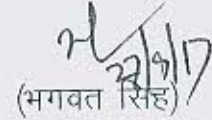 22/9/17
(भगवत सिंह)